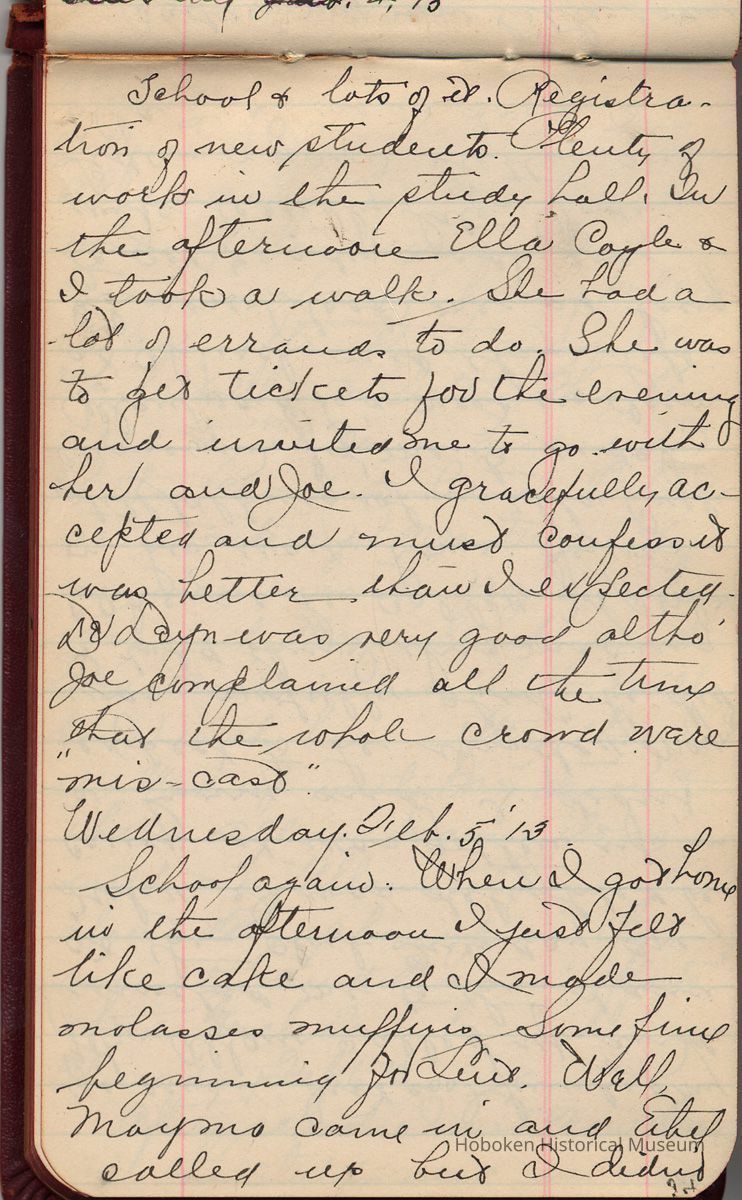 School & lots of it. Registra-
tion of new students. Plenty of
work in the study hall. In
the afternoon Ella Coyle &
I took a walk. She had a
lot of errands to do. She was
to get tickets for the evening
and invited me to go with
her and Joe. I gracefully ac-
cepted and must confess it
was better than I expected.
was very good altho'
Joe complained all the time
that the whole crowd were
"mis-cast".
Wednesday. Feb. 5 '13.
School again. When I got home
in the afternoon I just felt
like cake and I made
molasses muffins. Some fine
beginning for Lent. Well,
Maymo came in and Ethel
called up but I didn't
Hoboken Historical Museum